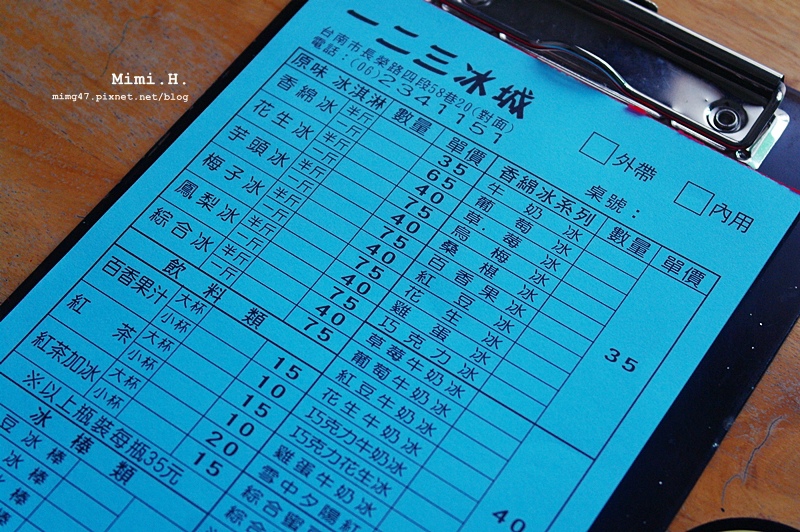 Mimi.H.
mimg47.pixnet.net/blog
一二三冰城
台南市長榮路四段58巷20(對面)
電話:(06)2341151
外帶
桌號:
內用
原味 冰淇淋 數量 單價
香綿冰 半斤 35
一斤 65
花生冰 半斤 40
一斤 75
芋頭冰 半斤 40
一斤 75
梅子冰 半斤 40
一斤 75
鳳梨冰 半斤 40
一斤 75
綜合冰 半斤 40
一斤 75
飲料類
百香果汁 大杯 15
小杯 10
紅茶 大杯 15
小杯 10
紅茶加冰 大杯 20
小杯 15
※以上瓶裝每瓶35元
冰棒類
豆冰棒
冰棒
冰棒
香綿冰系列 數量 單價
牛奶冰
葡萄冰
草莓冰
烏梅冰
桑椹冰
百香果冰
紅豆冰
花生冰
雞蛋冰
巧克力冰
35
草莓牛奶冰
葡萄牛奶冰
紅豆牛奶冰
花生牛奶冰
巧克力牛奶冰
巧克力花生冰
雞蛋牛奶冰
雪中夕陽紅
綜合蜜
綜合
40